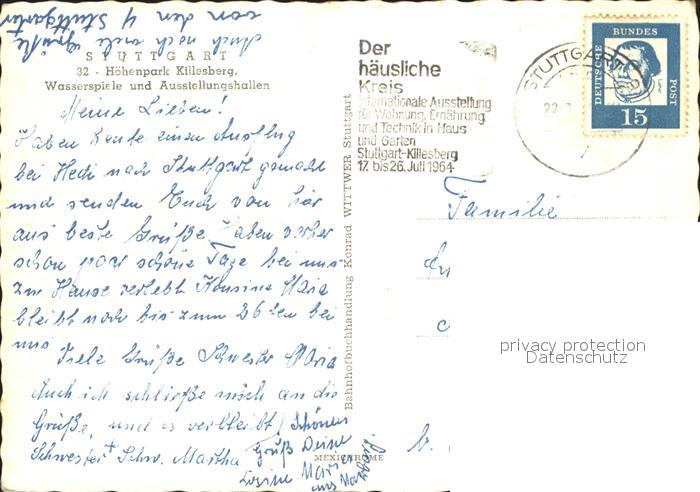 Auch noch viele Grüße
von den 4 Stuttgarter
STUTTGART
32 - Höhenpark Killesberg,
Wasserspiele und Ausstellungshallen
Meine Lieben!
Haben heute einen Ausflug
bei Hedi nach Stuttgart gemacht
und senden Euch von hier
aus beste Grüße. Haben vorher
schon paar schöne Tage bei uns
zu Hause verlebt. Kousine Maria
bleibt noch bis zum 26ten bei
uns
Viele Grüße Schwester Maria
Auch ich schließe mich an die
Grüße, und es verbleibt
Schwester Schw. Martha
Schönen
Gruß Deine
Maria
Bahnhofbuchhandlung Konrad WITTWER Stuttgart
MEXICHROME
Der
häusliche
Kreis
Internationale Ausstellung
für Wohnung, Ernährung
und Technik in Haus
und Garten
Stuttgart-Killesberg
17. bis 26. Juli 1964
STUTTGART
22.
DEUTSCHE
BUNDES
POST
15
Familie
b.
privacy protection
Datenschutz